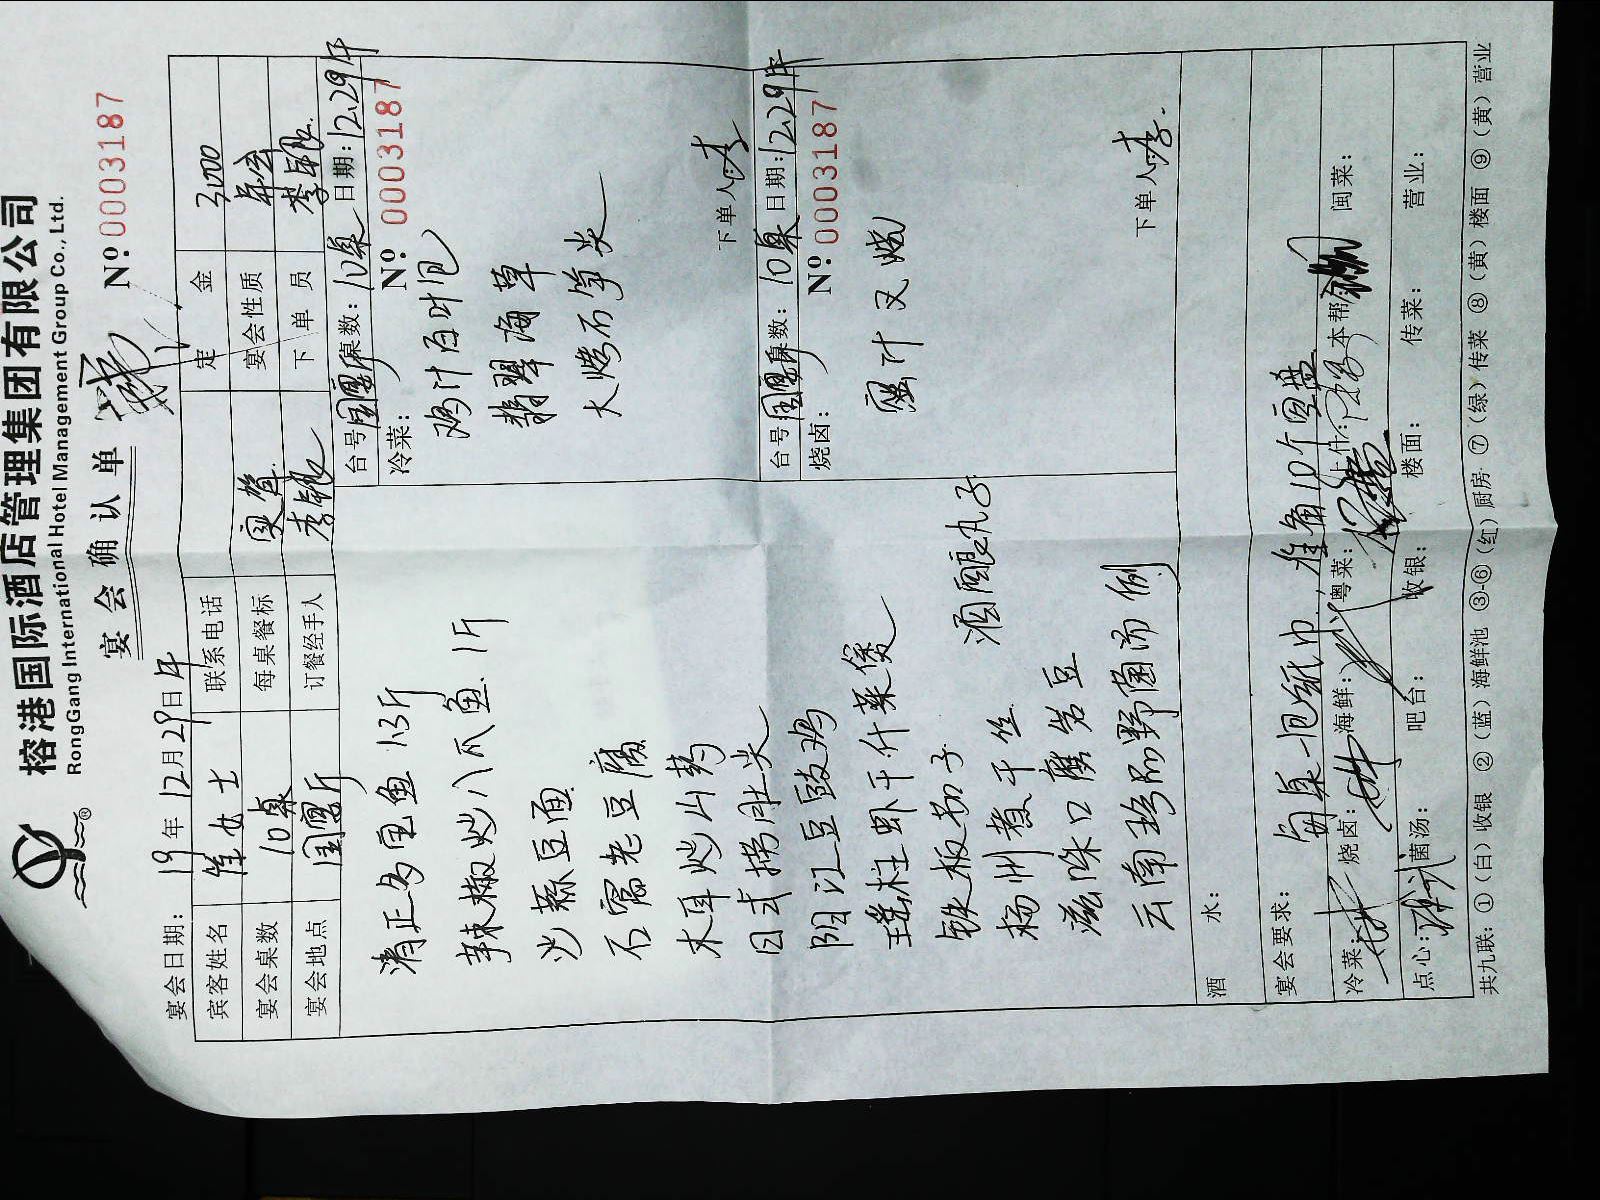 榕港国际酒店管理集团有限公司
RongGang International Hotel Management Group Co., Ltd.
宴会确认单
№ 0003187
宴会日期: 19年12月29日 午
宾客姓名 女士 联系电话 定金 3000
宴会桌数 10桌 每桌餐标 宴会性质 年会
宴会地点 国宴厅 订餐经手人 李 下单员 李
台号: 国宴厅 桌数: 10桌 日期: 12.29午
冷菜: № 0003187
鸡汁百叶包
翡翠海草
大烤石笋尖
下单人: 李
台号: 国宴厅 桌数: 10桌 日期: 12.29午
烧卤: № 0003187
蜜汁叉烧
下单人: 李
清正多宝鱼 1.3斤
辣椒炒八爪鱼 1斤
沙蒜豆面
石窝老豆腐
木耳炒山药
日式捞肚尖
阳江豆豉鸡
瑶柱虾干什菜煲
铁板茄子
扬州煮干丝 酒酿丸子
滋味口蘑芸豆
云南珍品野菌汤 例
酒水:
宴会要求: 每桌一包纸巾, 准备10个豆盘
冷菜: 烧卤: 海鲜: 粤菜: 上什: 本帮: 闽菜:
点心: 菌汤: 吧台: 收银: 楼面: 传菜: 营业:
共九联: ①(白)收银 ②(蓝)海鲜池 ③-⑥(红)厨房 ⑦(绿)传菜 ⑧(黄)楼面 ⑨(黄)营业